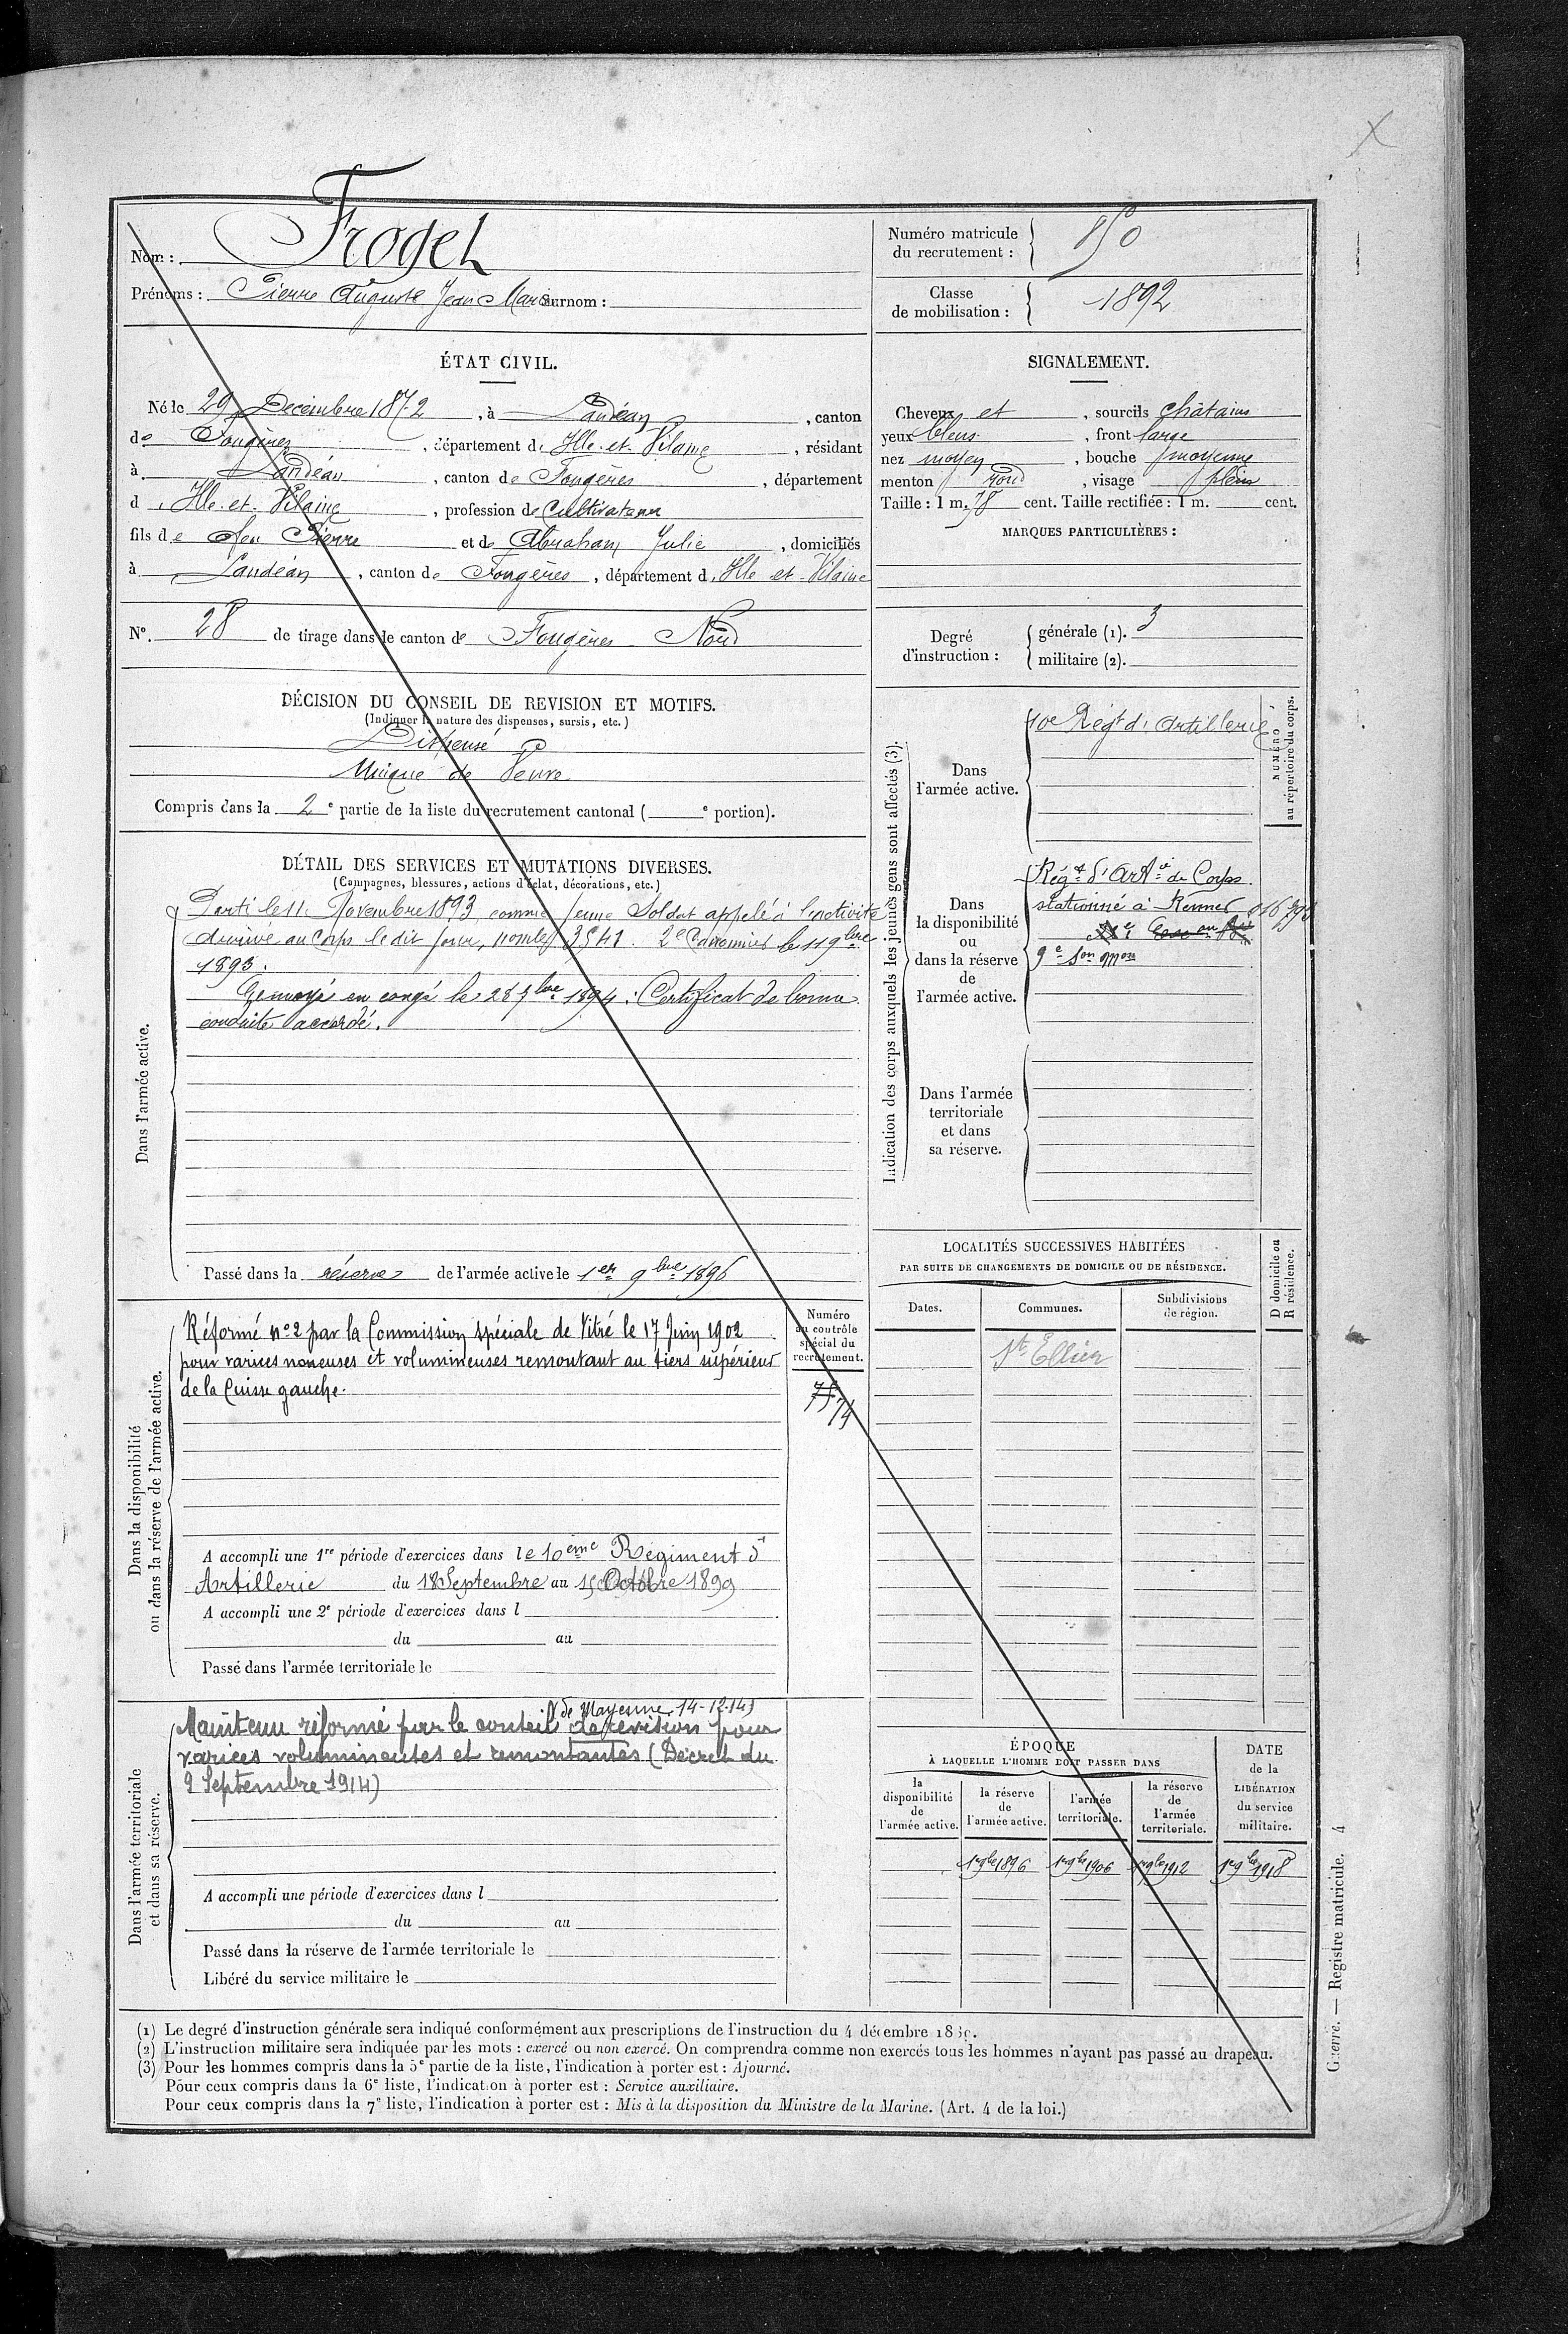 Nom : Froget
Prénoms : Pierre Auguste Jean Marie Surnom :
Numéro matricule du recrutement : 850
Classe de mobilisation : 1892
ÉTAT CIVIL.
Né le 29 Décembre 1872, à Landéan, canton
de Fougères, département d Ille-et-Vilaine, résidant
à Landéan, canton de Fougères, département
d Ille-et-Vilaine, profession de Cultivateur
fils de feu Pierre et de Abraham Julie, domiciliés
à Landéan, canton de Fougères, département d Ille et Vilaine
N° 28 de tirage dans le canton de Fougères Nord
SIGNALEMENT.
Cheveux et, sourcils châtains
yeux bleus, front large
nez moyen, bouche moyenne
menton rond, visage plein
Taille : 1 m. 78 cent. Taille rectifiée : 1 m. cent.
MARQUES PARTICULIÈRES :
Degré d'instruction : générale (1). 3
militaire (2).
DÉCISION DU CONSEIL DE REVISION ET MOTIFS.
(Indiquer la nature des dispenses, sursis, etc.)
Dispensé
Unique de Veuve
Compris dans la 2e partie de la liste du recrutement cantonal ( e portion).
DÉTAIL DES SERVICES ET MUTATIONS DIVERSES.
(Campagnes, blessures, actions d'éclat, décorations, etc.)
Dans l'armée active.
Parti le 11 Novembre 1893 comme jeune Soldat appelé à l'activité
Arrivé au Corps le dit jour, nomle 3541. 2e Canonnier le 11 9bre
1893.
Envoyé en congé le 28 7bre 1894 : Certificat de bonne
conduite accordé.
Passé dans la réserve de l'armée active le 1er 9bre 1896
Indication des corps auxquels les jeunes gens sont affectés (3).
NUMÉRO au répertoire du corps.
Dans l'armée active.
10e Régt d'Artillerie
Dans la disponibilité ou dans la réserve de l'armée active.
Régt d'Artie de Corps
stationné à Rennes
9e Son Mon
Dans l'armée territoriale et dans sa réserve.
LOCALITÉS SUCCESSIVES HABITÉES
PAR SUITE DE CHANGEMENTS DE DOMICILE OU DE RÉSIDENCE.
D domicile ou R résidence.
Dates. Communes. Subdivisions de région.
St Ellier
Dans la disponibilité ou dans la réserve de l'armée active.
Numéro au contrôle spécial du recrutement.
74
Réformé n° 2 par la Commission spéciale de Vitré le 17 Juin 1902
pour varices noueuses et volumineuses remontant au tiers supérieur
de la Cuisse gauche.
A accompli une 1re période d'exercices dans le 10ème Régiment d'
Artillerie du 18 Septembre au 15 Octobre 1899
A accompli une 2e période d'exercices dans l
du au
Passé dans l'armée territoriale le
Dans l'armée territoriale et dans sa réserve.
(de Mayenne, 14-12-14)
Maintenu réformé par le conseil de revision pour
varices volumineuses et remontantes (Décret du
9 Septembre 1914)
A accompli une période d'exercices dans l
du au
Passé dans la réserve de l'armée territoriale le
Libéré du service militaire le
ÉPOQUE
À LAQUELLE L'HOMME DOIT PASSER DANS
la disponibilité de l'armée active.
la réserve de l'armée active.
l'armée territoriale.
la réserve de l'armée territoriale.
DATE de la LIBÉRATION du service militaire.
1er 9bre 1896 1er 9bre 1906 1er 9bre 1912 1er 9bre 1918
(1) Le degré d'instruction générale sera indiqué conformément aux prescriptions de l'instruction du 4 décembre
(2) L'instruction militaire sera indiquée par les mots : exercé ou non exercé. On comprendra comme non exercés tous les hommes n'ayant pas passé au drapeau.
(3) Pour les hommes compris dans la 5e partie de la liste, l'indication à porter est : Ajourné.
Pour ceux compris dans la 6e liste, l'indication à porter est : Service auxiliaire.
Pour ceux compris dans la 7e liste, l'indication à porter est : Mis à la disposition du Ministre de la Marine. (Art. 4 de la loi.)
Guerre. — Registre matricule. 4